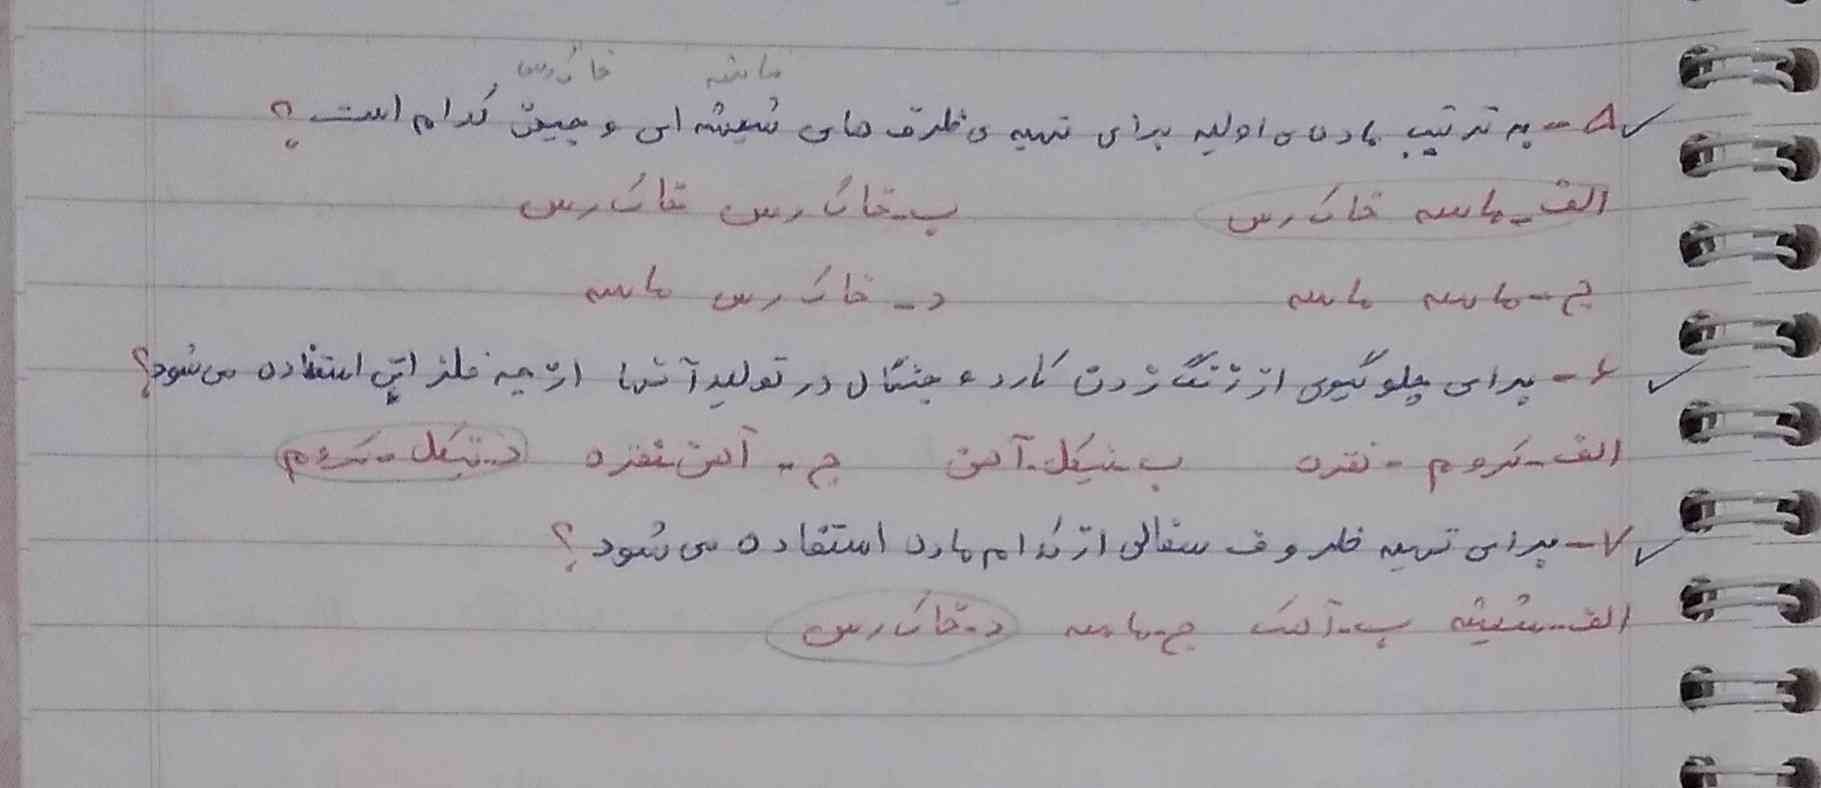 ماسه خاک رس
۵- به ترتیب ماده ی اولیه برای تهیه ی ظرف های شیشه ای و چینی کدام است؟
الف- ماسه خاک رس ب- خاک رس خاک رس
ج- ماسه ماسه د- خاک رس ماسه
۶- برای جلوگیری از زنگ زدن کارد و چنگال در تولید آنها از چه فلزاتی استفاده می شود؟
الف- کروم - نقره ب- نیکل- آهن ج- آهن نقره د- نیکل- کروم
۷- برای تهیه ظروف سفالی از کدام ماده استفاده می شود؟
الف- شیشه ب- آهک ج- ماسه د- خاک رس